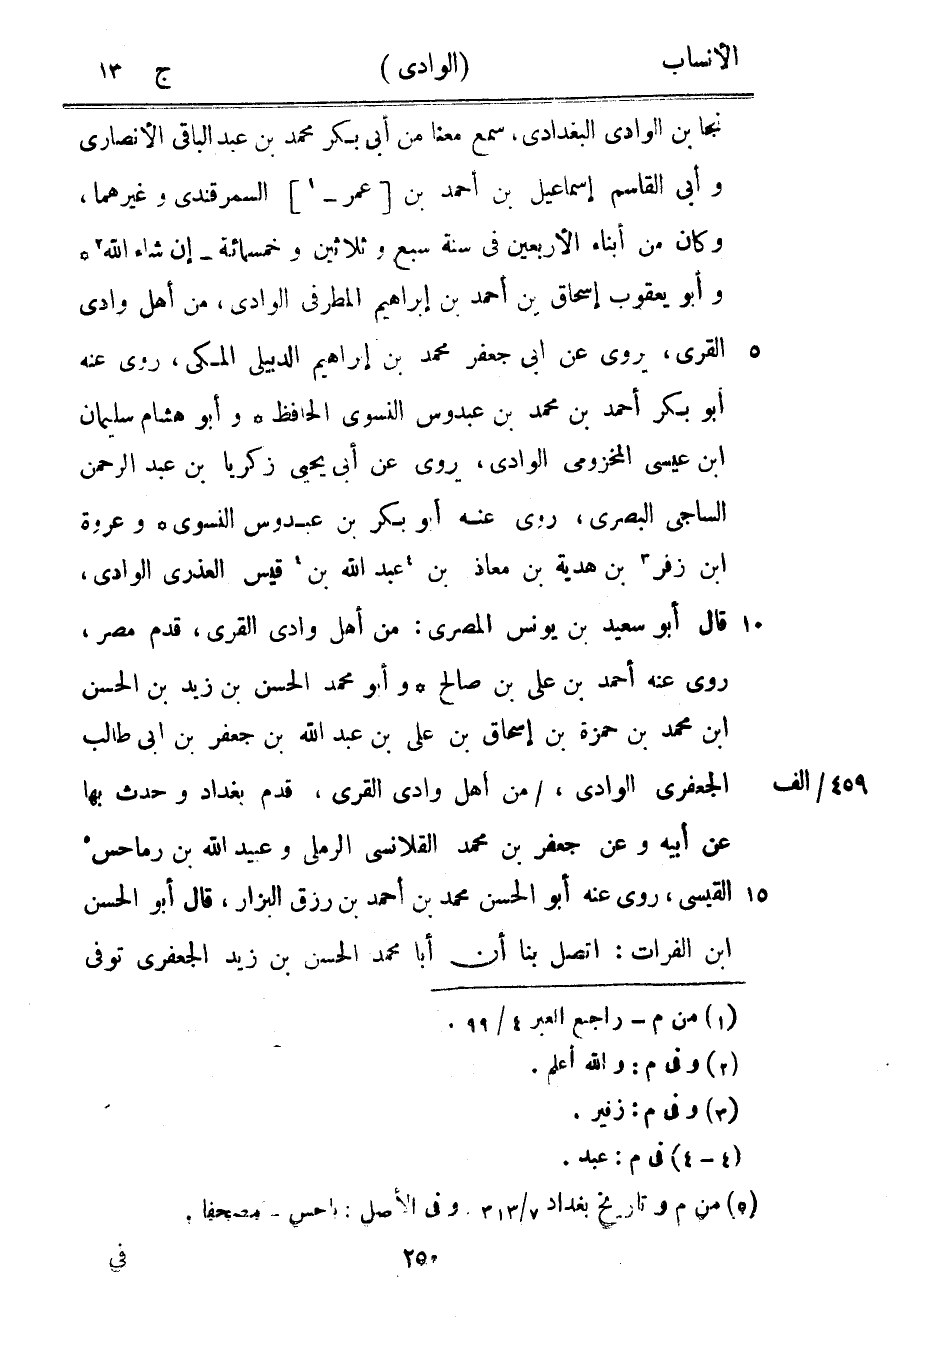 الأنساب (الوادى) ج ١٣
نجا بن الوادى البغدادى، سمع معنا من أبي بكر محمد بن عبد الباقى الأنصارى
و أبى القاسم إسماعيل بن أحمد بن [ عمر - ١ ] السمرقندى و غيرهما،
وكان من أبناء الأربعين فى سنة سبع و ثلاثين و خمسمائة - إن شاء الله٢ *
و أبو يعقوب إسحاق بن أحمد بن إبراهيم المطرفى الوادى، من أهل وادى
٥ القرى، يروى عن ابى جعفر محمد بن إبراهيم الديبلى المكى، روى عنه
أبو بكر أحمد بن محمد بن عبدوس النسوى الحافظ * و أبو هشام سليمان
ابن عيسى المخزومى الوادى، يروى عن أبى يحيى زكريا بن عبد الرحمن
الساجى البصرى، روى عنه أبو بكر بن عبدوس النسوى * و عروة
ابن زفر٣ بن هدية بن معاذ بن ٤عبد الله بن٤ قيس العذرى الوادى،
١٠ قال أبو سعيد بن يونس المصرى: من أهل وادى القرى، قدم مصر،
روى عنه أحمد بن على بن صالح * و أبو محمد الحسن بن زيد بن الحسن
ابن محمد بن حمزة بن إسحاق بن على بن عبد الله بن جعفر بن ابى طالب
٤٥٩/ الف الجعفرى الوادى، / من أهل وادى القرى، قدم بغداد و حدث بها
عن أبيه و عن جعفر بن محمد القلانسى الرملى و عبيد الله بن رماحس٥
١٥ القيسى، روى عنه أبو الحسن محمد بن أحمد بن رزق البزار، قال أبو الحسن
ابن الفرات: اتصل بنا أن أبا محمد الحسن بن زيد الجعفرى توفى
(١) من م - راجع العبر ٤/ ٩٩.
(٢) و فى م: و الله أعلم.
(٣) و فى م: زنير.
(٤ - ٤) فى م: عبد.
(٥) من م و تاريخ بغداد ٧/ ٣١٣. و فى الأصل: ناحس - مصحفا.
٢٥٠ في